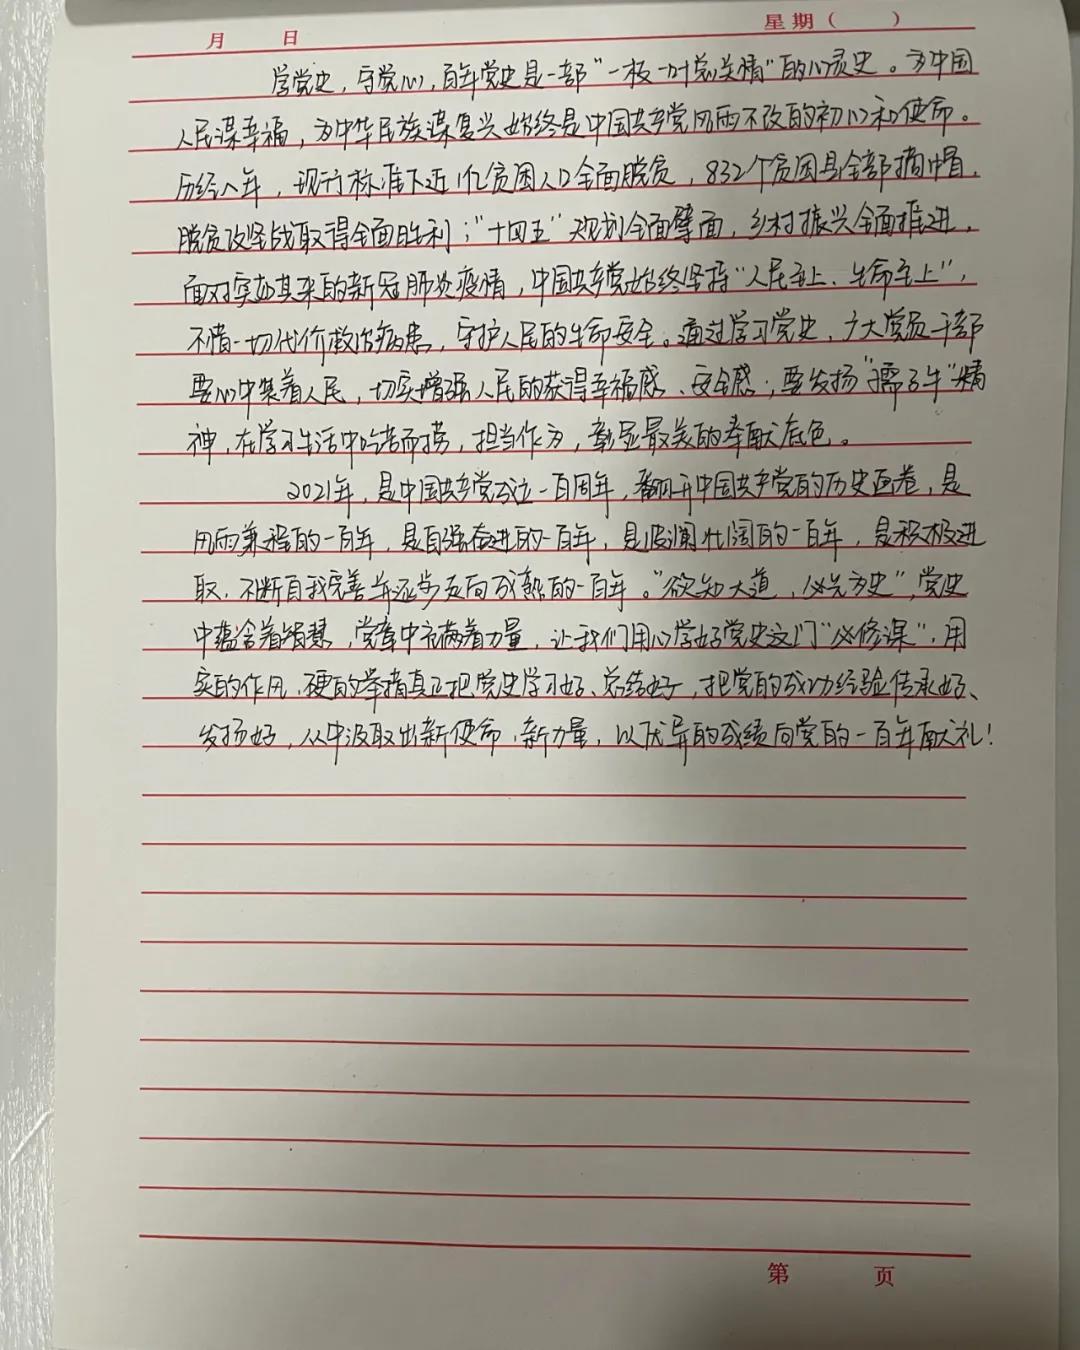 月 日 星期（ ）
学党史，守党心，百年党史是一部"一枝一叶总关情"的心灵史。为中国
人民谋幸福，为中华民族谋复兴始终是中国共产党风雨不改的初心和使命。
历经八年，现行标准下近1亿贫困人口全面脱贫，832个贫困县全部摘帽，
脱贫攻坚战取得全面胜利；"十四五"规划全面擘画，乡村振兴全面推进，
面对突如其来的新冠肺炎疫情，中国共产党始终坚持"人民至上、生命至上"，
不惜一切代价救治病患，守护人民的生命安全。通过学习党史，广大党员干部
要心中装着人民，切实增强人民的获得幸福感、安全感；要发扬"孺子牛"精
神，在学习生活中吃苦耐劳，担当作为，彰显最美的奉献底色。
2021年，是中国共产党成立一百周年，翻开中国共产党的历史画卷，是
风雨兼程的一百年，是自强奋进的一百年，是波澜壮阔的一百年，是积极进
取、不断自我完善并逐步走向成熟的一百年。"欲知大道，必先为史"，党史
中蕴含着智慧，党章中充满着力量，让我们用心学好党史这门"必修课"，用
实的作风，硬的举措真正把党史学习好、总结好，把党的成功经验传承好、
发扬好，从中汲取出新使命，新力量，以优异的成绩向党的一百年献礼！
第 页